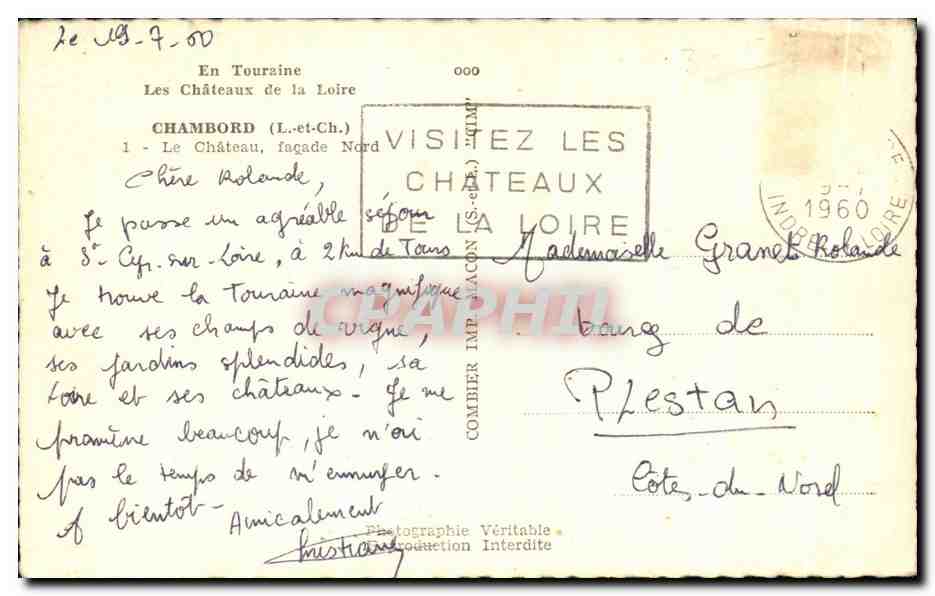 Le 19-7-60
En Touraine
Les Châteaux de la Loire
CHAMBORD (L.-et-Ch.)
1 - Le Château, façade Nord
Chère Rolande,
Je passe un agréable séjour
à St-Cyr-sur-Loire, à 2 km de Tours
Je trouve la Touraine magnifique
avec ses champs de vigne,
ses jardins splendides, sa
Loire et ses châteaux. Je me
promène beaucoup, je n'ai
pas le temps de m'ennuyer.
A bientôt -
Amicalement
Christiane
ooo
COMBIER IMP. MACON (S.-et-L.) "CIM"
VISITEZ LES
CHATEAUX
DE LA LOIRE
1960
INDRE LOIRE
Mademoiselle Granet Rolande
bourg de
PLestan
Côtes-du-Nord
Photographie Véritable
Reproduction Interdite
CPAPHIL